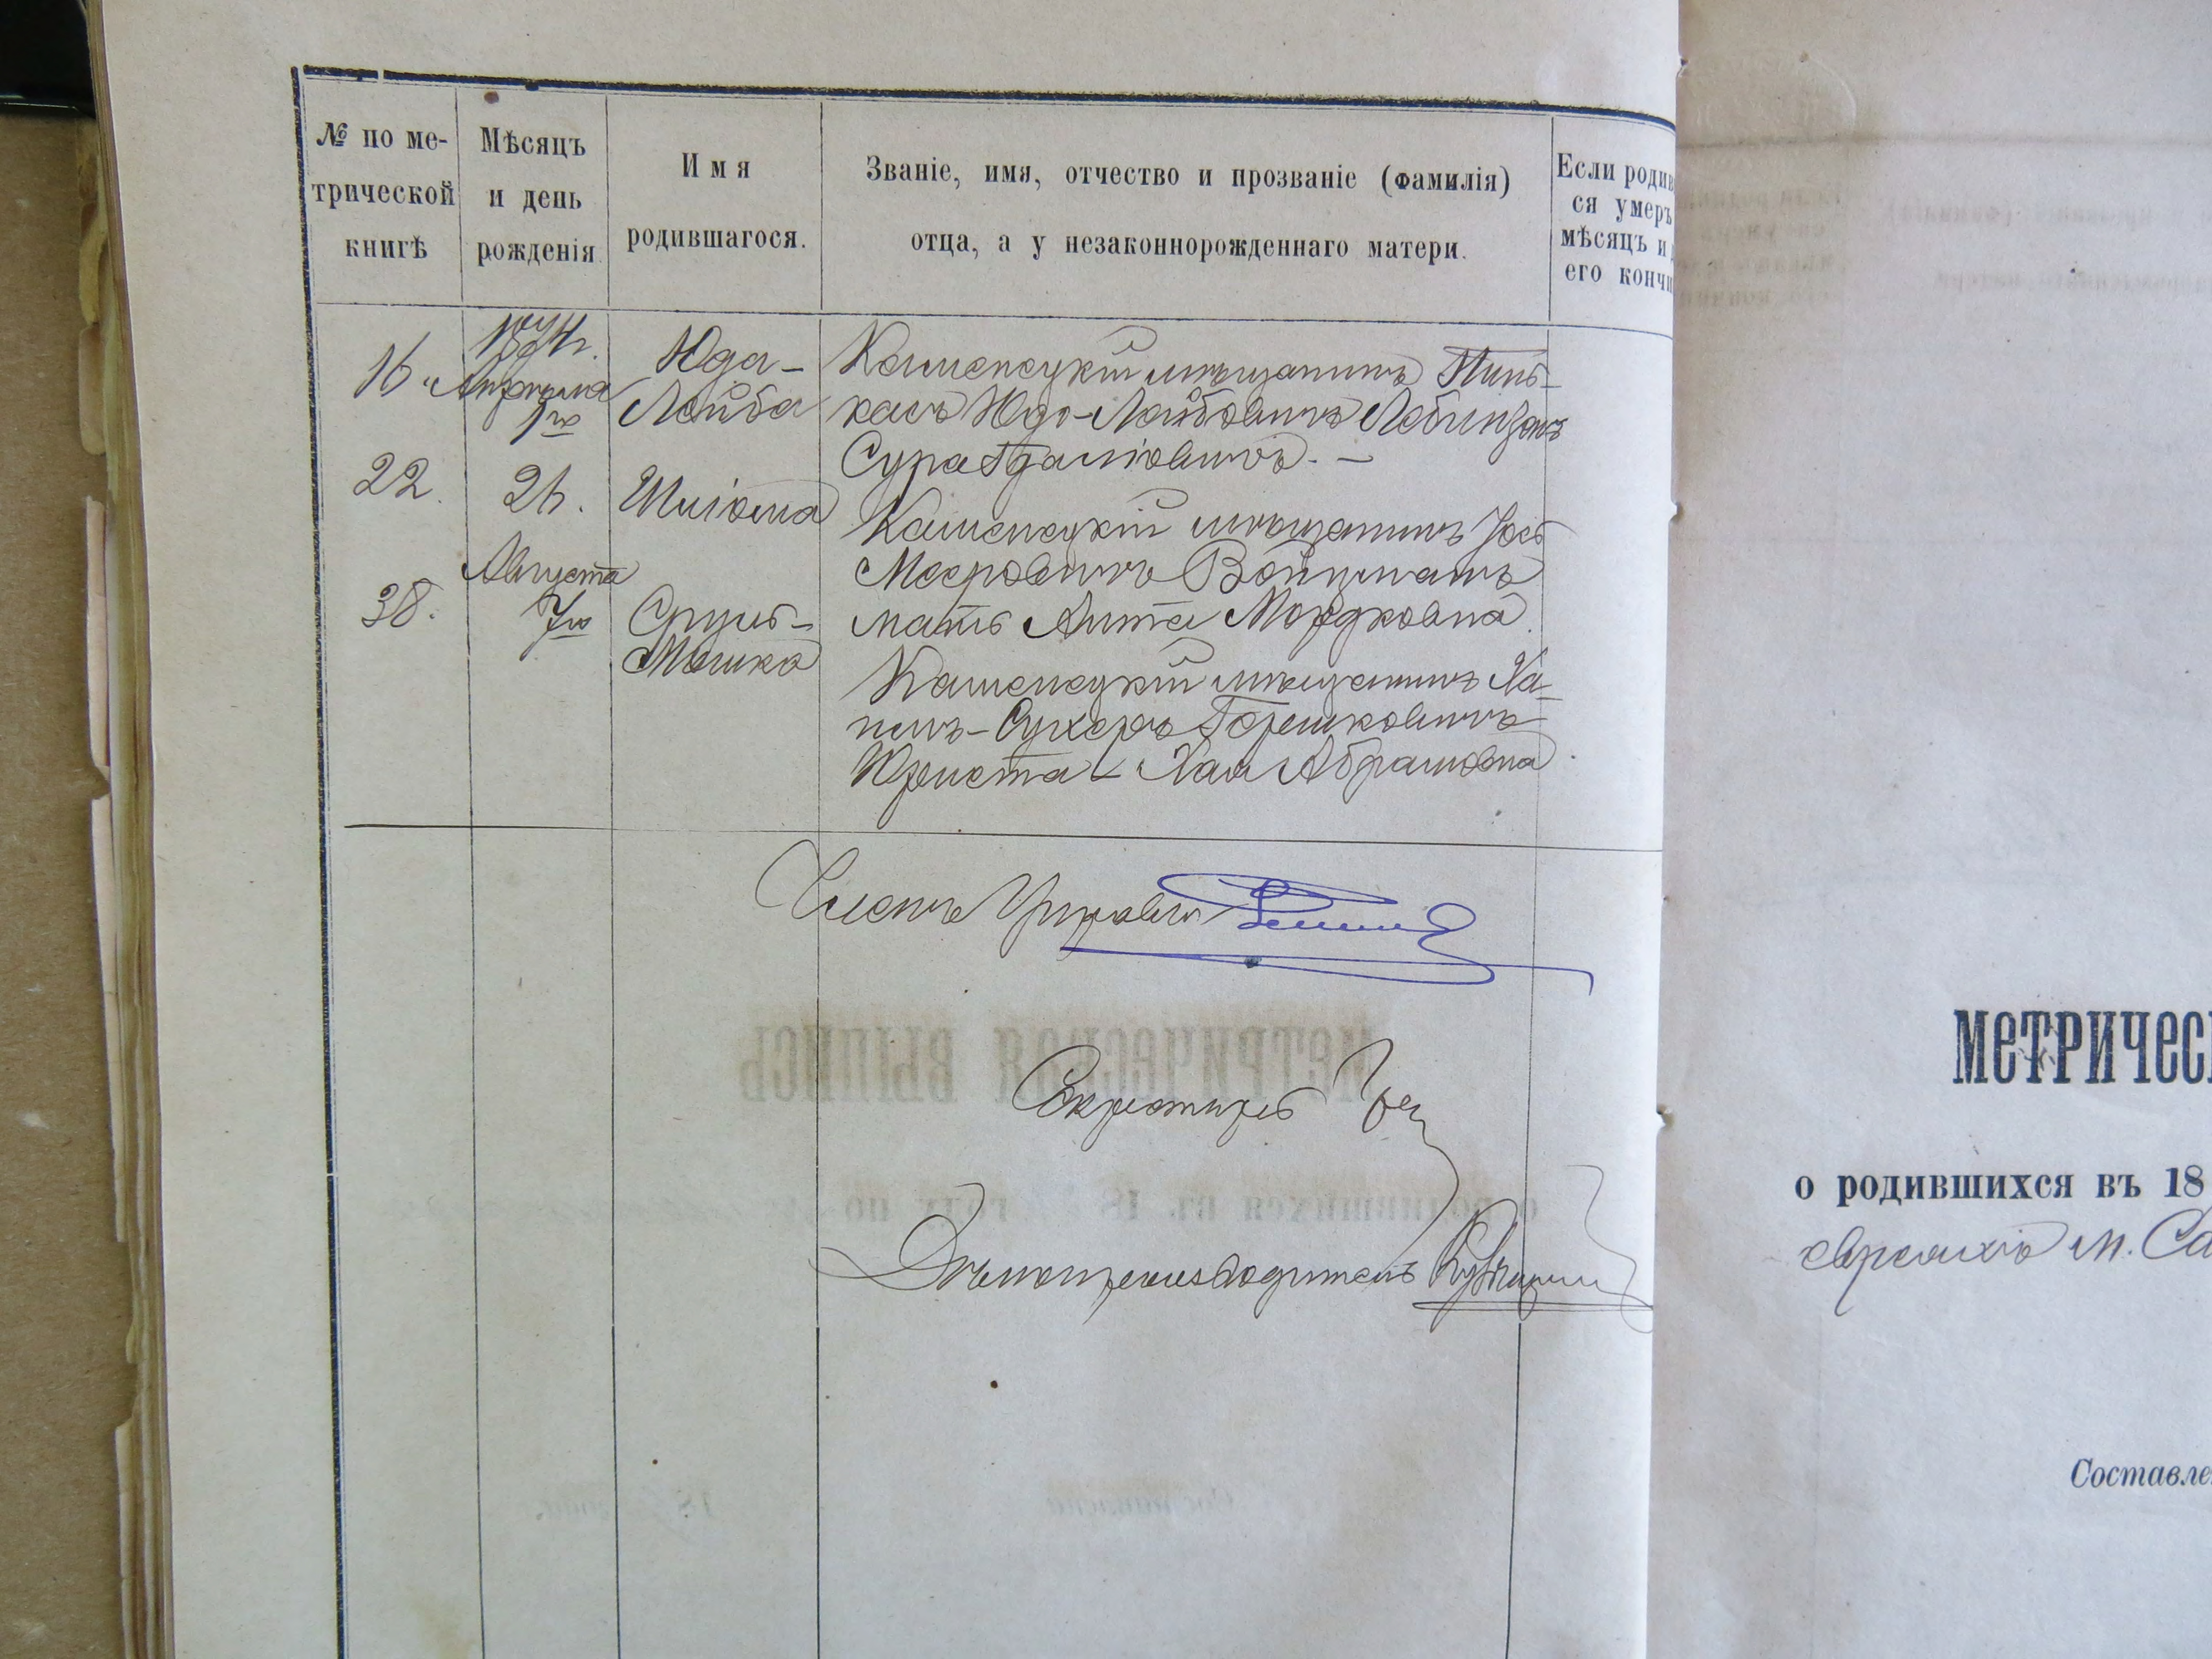 № по ме-
трической
книгѣ
Мѣсяцъ
и день
рожденія.
Имя
родившагося.
Званіе, имя, отчество и прозваніе (фамилія)
отца, а у незаконнорожденнаго матери.
Если родив
ся умеръ
мѣсяцъ и д
его кончи
16.
Апрѣля
1го
Юда-
Лейба
Каменецкій мѣщанинъ Пинь-
касъ Юдо-Лейбовичъ
Сура
22.
26.
Шліома
Каменецкій мѣщанинъ Іось
Мееровичъ Войцманъ
мать Анта Мордковна.
38.
Августа
7го
Сруль-
Мошка
Каменецкій мѣщанинъ Ха-
имъ-Сухеръ Гершковичъ
Хая Абрамовна.
Членъ Управы
Секретарь
Дѣлопроизводитель
МЕТРИЧЕСКАЯ ВЫПИСЬ
о родившихся въ 18 году по
МЕТРИЧЕС
о родившихся въ 18
евреяхъ м. Са
Составле